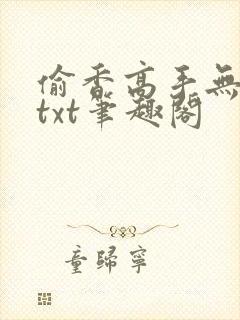 偷香高手無
txt筆趣閣
童歸寧